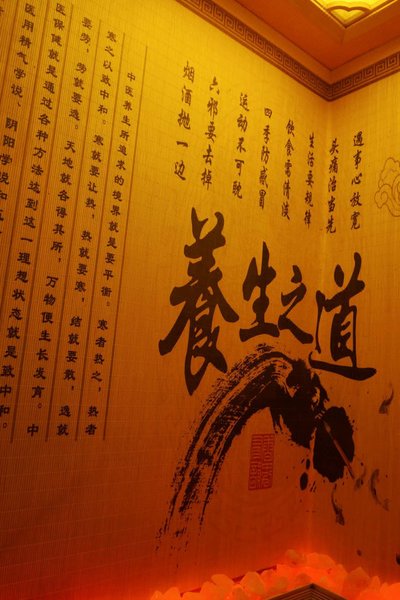 遇事心放宽
头痛治当先
生活要规律
饮食需清淡
四季防感冒
运动不可耽
六邪要去掉
烟酒抛一边
養生之道
中医养生所追求的境界就是要平衡。寒者热之，热者
寒之以致中和。寒就要让热，热就要寒，结就要散，逸就
要劳，劳就要逸。天地就各得其所，万物便生长发育。中
医保健就是通过各种方法达到这一理想状态就是致中和。
医用精气学说、阴阳学说和五